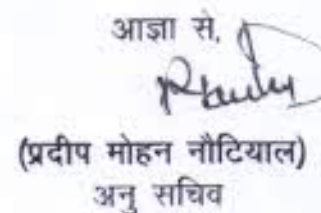 आज्ञा से,
(प्रदीप मोहन नौटियाल)
अनु सचिव